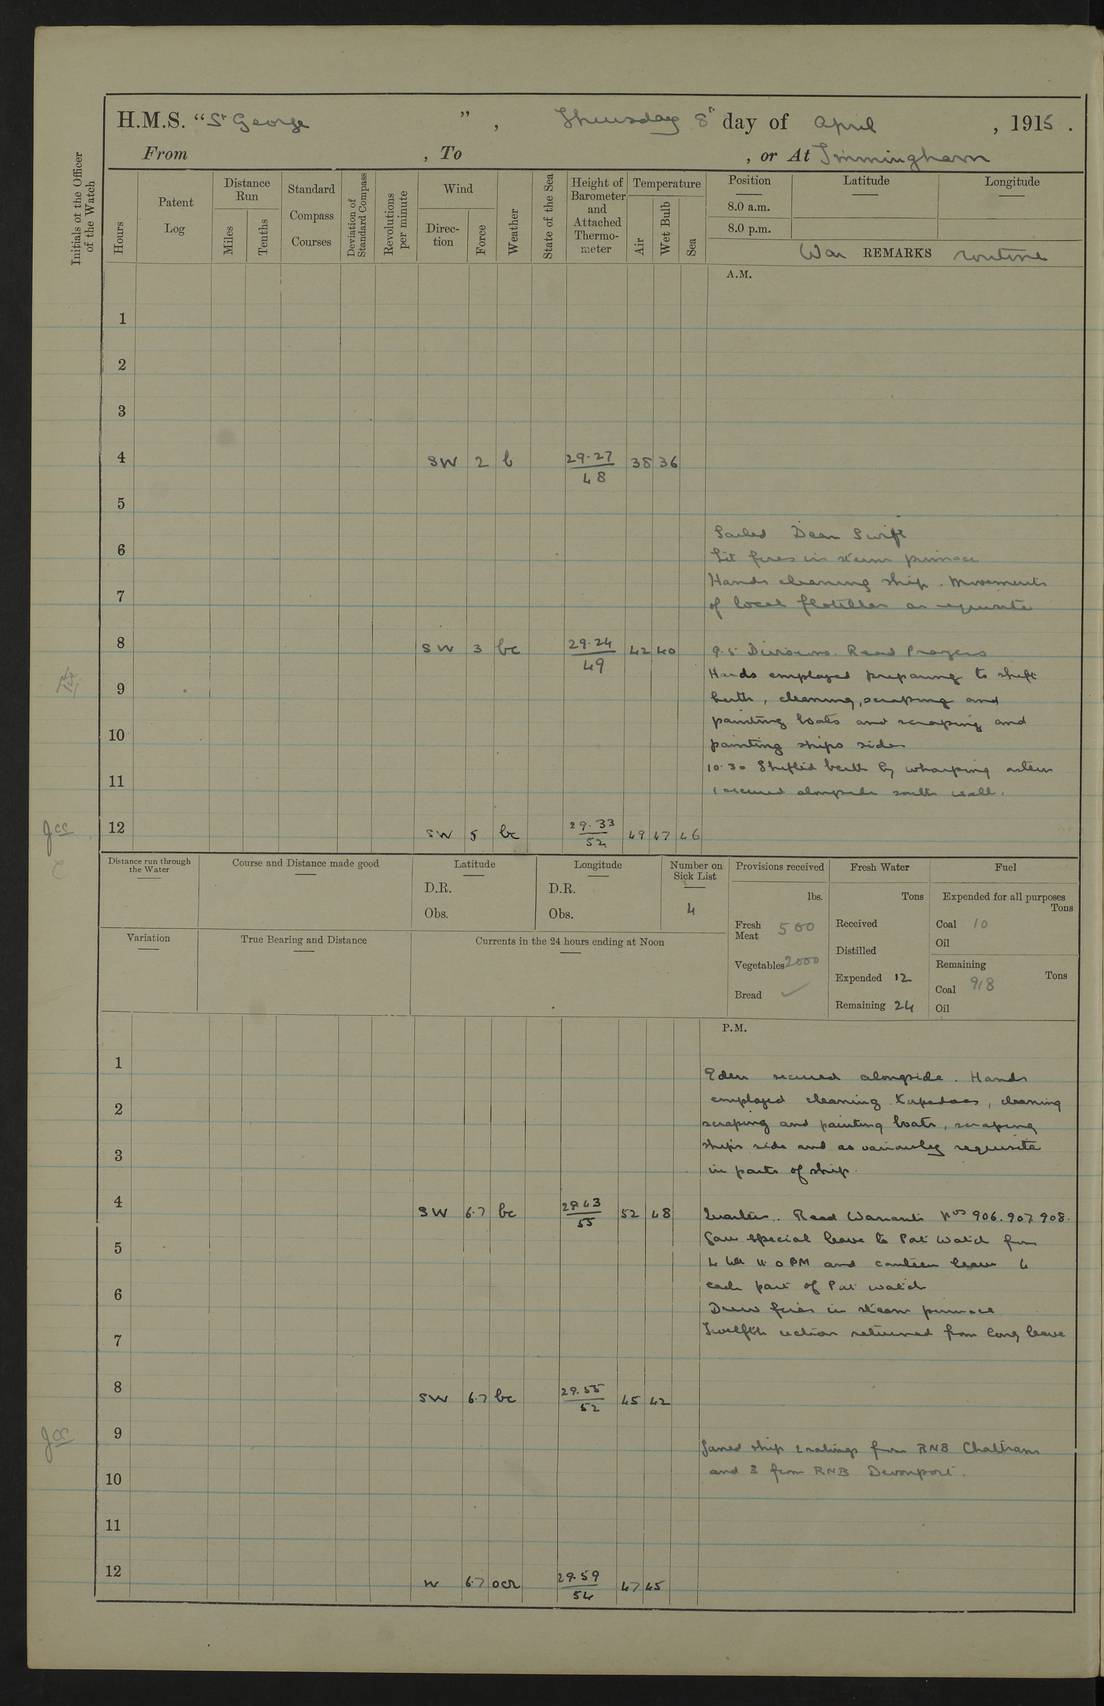 H.M.S. "St George ", Thursday 8th day of April, 1915.
From , To , or At Immingham
Initials of the Officer of the Watch
Hours
Patent Log
Distance Run
Miles
Tenths
Standard Compass Courses
Deviation of Standard Compass
Revolutions per minute
Wind
Direction
Force
Weather
State of the Sea
Height of Barometer and Attached Thermometer
Temperature
Air
Wet Bulb
Sea
Position
Latitude
Longitude
8.0 a.m.
8.0 p.m.
War REMARKS routine
A.M.
1
2
3
4 SW 2 b 29.27/48 38 36
5
Sailed Dean Swift
6
Lit fires in steam pinnace
Hands cleaning ship. Movements
7
of local flotillas as requisite
8 SW 3 bc 29.24/49 42 40 9.5 Divisions. Read Prayers
Hands employed preparing to shift
9
berth, cleaning, scraping and
painting boats and scraping and
10
painting ships side
10.30 Shifted berth by wharping astern
11
& secured alongside south wall.
Jcc 12 SW 5 bc 29.33/52 49 47 46
Distance run through the Water
Course and Distance made good
Latitude
D.R.
Obs.
Longitude
D.R.
Obs.
Number on Sick List
4
Provisions received
lbs.
Fresh Meat 500
Vegetables 2000
Bread ✓
Fresh Water
Tons
Received
Distilled
Expended 12
Remaining 24
Fuel
Expended for all purposes
Tons
Coal 10
Oil
Remaining
Tons
Coal 918
Oil
Variation
True Bearing and Distance
Currents in the 24 hours ending at Noon
P.M.
1
Eden secured alongside. Hands
2
employed cleaning, cleaning
scraping and painting boats, scraping
3
ships side and as variously requisite
in parts of ship.
4 SW 6.7 bc 29.43/55 52 48 Quarters. Read Warrants Nos 906. 907. 908.
5
Gave special leave to Pat Watch from
4 till 11.0 PM and canteen leave to
6
each part of Pat watch
Drew fires in steam pinnace
7
Twelfth section returned from long leave
8 SW 6.7 bc 29.55/52 45 42
Jcc 9
Joined ship 2 ratings from RNB Chatham
10
and 3 from RNB Devonport.
11
12 W 6.7 ocr 29.59/54 47 45